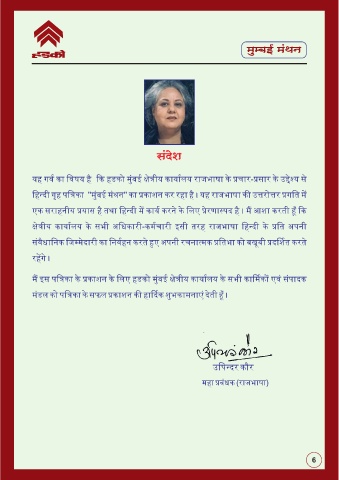 हडको
मुम्बई मंथन
संदेश
यह गर्व का विषय है कि हडको मुंबई क्षेत्रीय कार्यालय राजभाषा के प्रचार-प्रसार के उद्देश्य से
हिन्दी गृह पत्रिका "मुंबई मंथन" का प्रकाशन कर रहा है। यह राजभाषा की उत्तरोत्तर प्रगति में
एक सराहनीय प्रयास है तथा हिन्दी में कार्य करने के लिए प्रेरणास्पद है। मैं आशा करती हूँ कि
क्षेत्रीय कार्यालय के सभी अधिकारी-कर्मचारी इसी तरह राजभाषा हिन्दी के प्रति अपनी
संवैधानिक जिम्मेदारी का निर्वहन करते हुए अपनी रचनात्मक प्रतिभा को बखूबी प्रदर्शित करते
रहेंगे।
मैं इस पत्रिका के प्रकाशन के लिए हडको मुंबई क्षेत्रीय कार्यालय के सभी कार्मिकों एवं संपादक
मंडल को पत्रिका के सफल प्रकाशन की हार्दिक शुभकामनाएं देती हूँ।
उपिन्दर कौर
उपिन्दर कौर
महा प्रबंधक (राजभाषा)
6